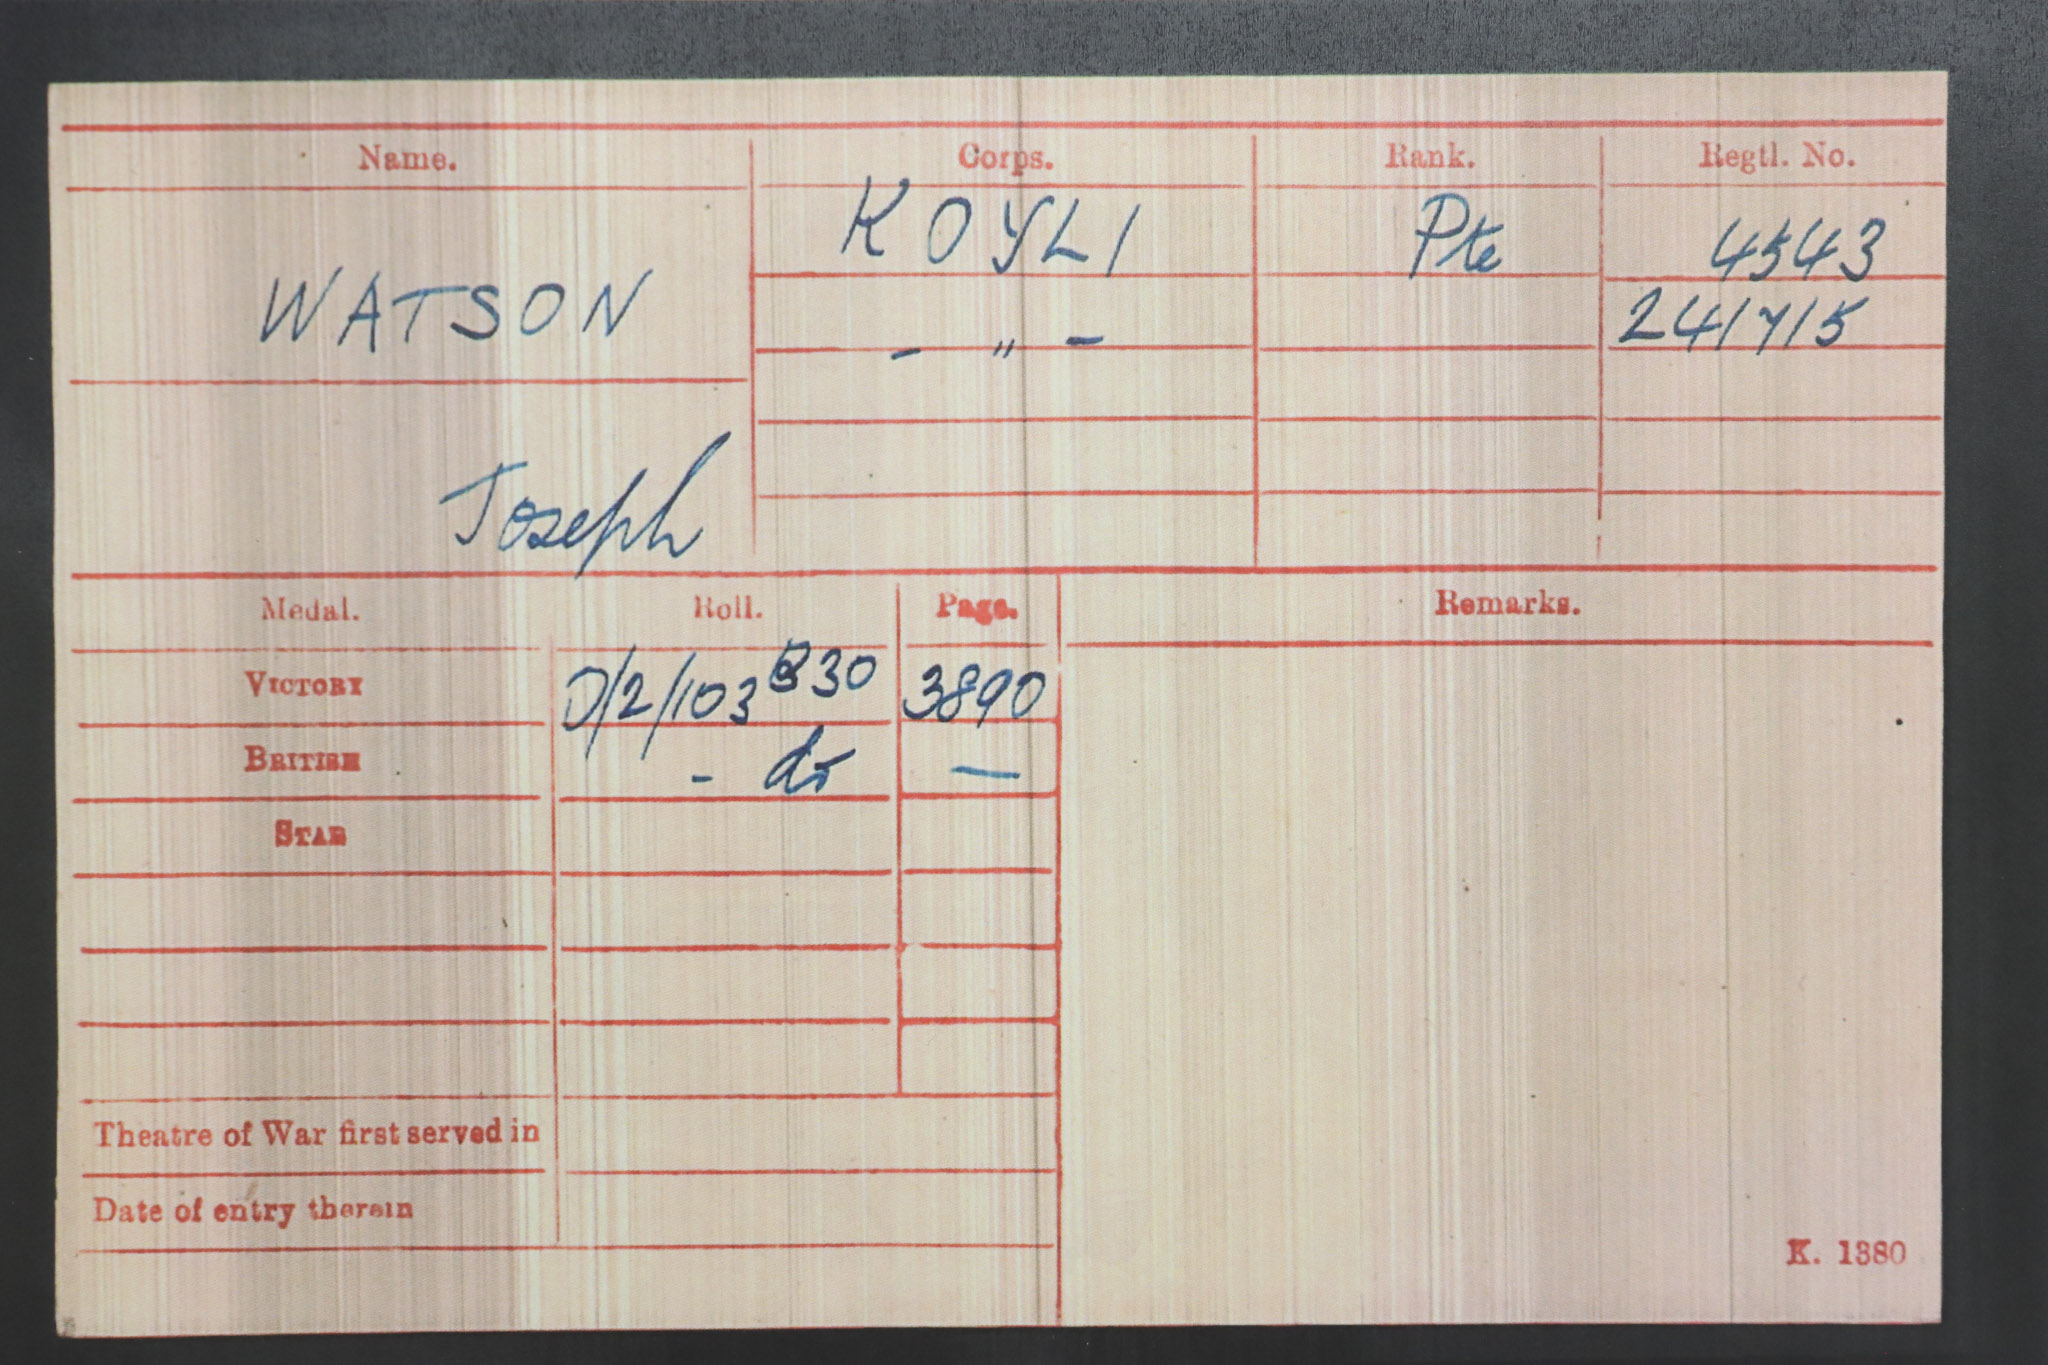 Name. Corps. Rank. Regtl. No.
KOYLI Pte 4543
WATSON - " - 241715
Joseph
Medal. Roll. Page. Remarks.
VICTORY O/2/103 B30 3890
BRITISH - do —
STAR
Theatre of War first served in
Date of entry therein
K. 1380